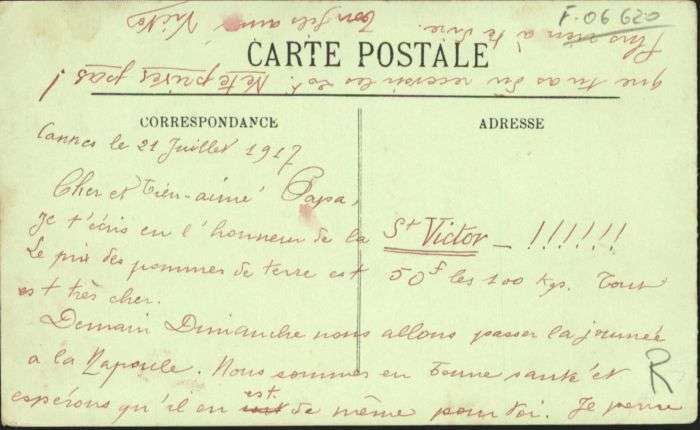 F-06 620
Plus rien à te dire.
Ton fils aimé Victor
que tu as dû recevoir les Ne te prives pas !
CARTE POSTALE
CORRESPONDANCE
ADRESSE
Cannes le 21 Juillet 1917
Cher et bien-aimé Papa,
Je t'écris en l'honneur de la St Victor – !!!!!!
Le prix des pommes de terre est 50f les 100 Kgs. Tout
est très cher.
Demain Dimanche nous allons passer la journée
a la Napoule. Nous sommes en bonne santé et
R
espérons qu'il en est de même pour toi. Je pense